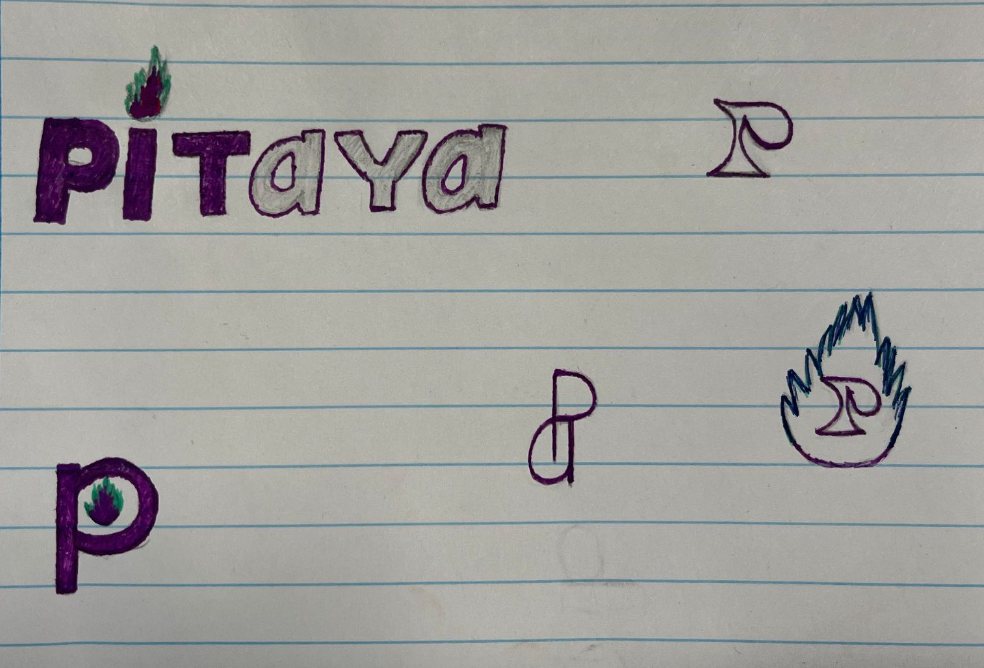 PiTaYa
P
P
Pa
P